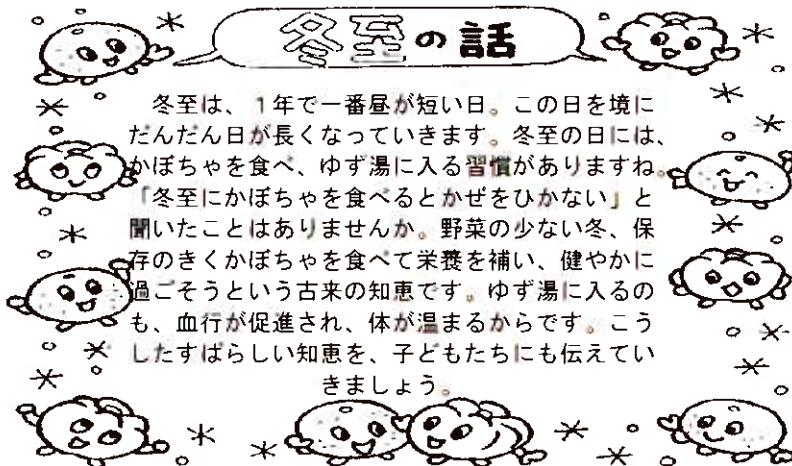 冬至の話
冬至は、1年で一番昼が短い日。この日を境に
だんだん日が長くなっていきます。冬至の日には、
かぼちゃを食べ、ゆず湯に入る習慣がありますね。
「冬至にかぼちゃを食べるとかぜをひかない」と
聞いたことはありませんか。野菜の少ない冬、保
存のきくかぼちゃを食べて栄養を補い、健やかに
過ごそうという古来の知恵です。ゆず湯に入るの
も、血行が促進され、体が温まるからです。こう
したすばらしい知恵を、子どもたちにも伝えてい
きましょう。